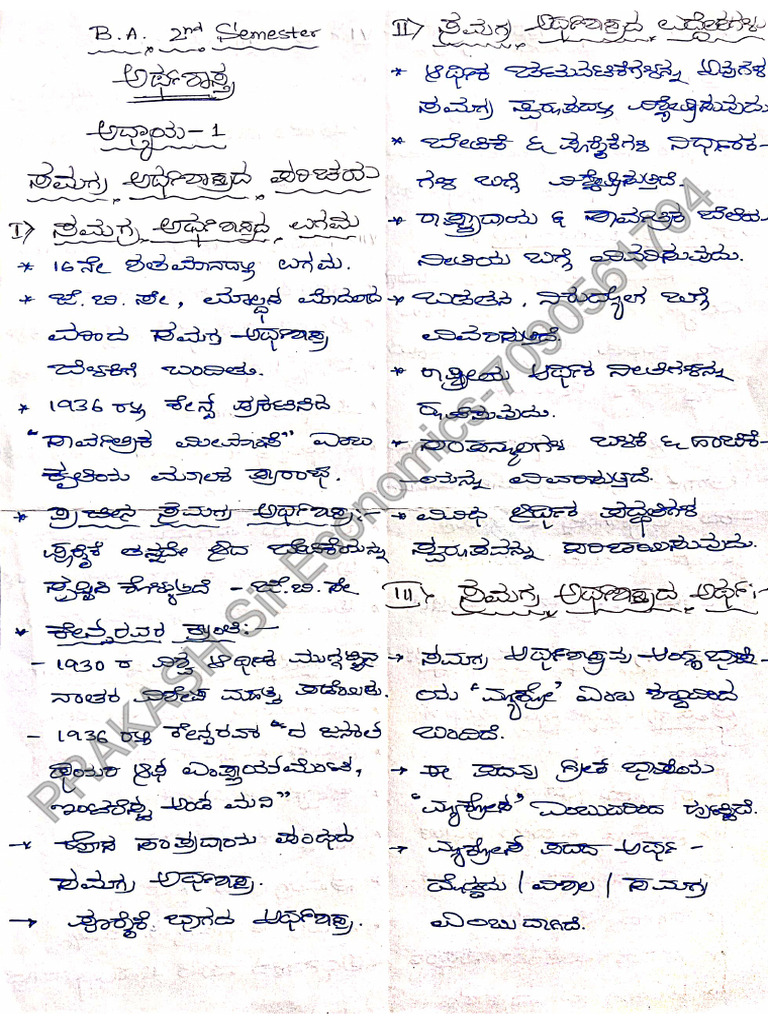 B.A. 2nd Semester
ಅರ್ಥಶಾಸ್ತ್ರ
ಅಧ್ಯಾಯ-1
ಸಮಗ್ರ ಅರ್ಥಶಾಸ್ತ್ರದ ಪರಿಚಯ
I> ಸಮಗ್ರ ಅರ್ಥಶಾಸ್ತ್ರದ ಉಗಮ
* 16ನೇ ಶತಮಾನದಲ್ಲಿ ಉಗಮ.
* ಜೆ.ಬಿ.ಸೇ, ಮಾಲ್ಥಸ ಮೊದಲಾದ
ವರಿಂದ ಸಮಗ್ರ ಅರ್ಥಶಾಸ್ತ್ರ
ಬೆಳಕಿಗೆ ಬಂದಿತು.
* 1936 ರಲ್ಲಿ ಕೇನ್ಸ್ ಪ್ರಕಟಿಸಿದ
"ಸಾರ್ವತ್ರಿಕ ಮೀಮಾಂಸೆ" ಎಂಬ
ಕೃತಿಯ ಮೂಲಕ ಪ್ರಾರಂಭ.
* ಪ್ರಾಚೀನ ಸಮಗ್ರ ಅರ್ಥಶಾಸ್ತ್ರ:-
ಪೂರೈಕೆ ತನ್ನದೇ ಆದ ಬೇಡಿಕೆಯನ್ನು
ಸೃಷ್ಟಿಸಿ ಕೊಳ್ಳುತ್ತದೆ - ಜೆ.ಬಿ.ಸೇ
* ಕೇನ್ಸರವರ ಕ್ರಾಂತಿ:-
- 1930 ರ ವಿಶ್ವ ಆರ್ಥಿಕ ಮುಗ್ಗಟ್ಟಿನ
ನಂತರ ವಿಶೇಷ ಮಹತ್ವ ಪಡೆಯಿತು.
- 1936 ರಲ್ಲಿ ಕೇನ್ಸರವರ "ದ ಜನರಲ
ಥಿಯರಿ ಆಫ ಎಂಪ್ಲಾಯಮೆಂಟ,
ಇಂಟರೆಸ್ಟ ಅಂಡ ಮನಿ"
→ ಹೊಸ ಸಂಪ್ರದಾಯ ಪಂಥದ
ಸಮಗ್ರ ಅರ್ಥಶಾಸ್ತ್ರ.
→ ಪೂರೈಕೆ ಭಾಗದ ಅರ್ಥಶಾಸ್ತ್ರ.
II> ಸಮಗ್ರ ಅರ್ಥಶಾಸ್ತ್ರದ ಉದ್ದೇಶಗಳು
* ಆರ್ಥಿಕ ಚಟುವಟಿಕೆಗಳನ್ನು ಅವುಗಳ
ಸಮಗ್ರ ಸ್ವರೂಪದಲ್ಲಿ ವಿಶ್ಲೇಷಿಸುವುದು
* ಬೇಡಿಕೆ & ಪೂರೈಕೆಗಳ ನಿರ್ಧಾರಕ-
ಗಳ ಬಗ್ಗೆ ವಿಶ್ಲೇಷಿಸುತ್ತದೆ.
* ರಾಷ್ಟ್ರಾದಾಯ & ಸಾರ್ವತ್ರಿಕ ಬೆಲೆಯ
ನೀತಿಯ ಬಗ್ಗೆ ವಿವರಿಸುವುದು.
* ಬಡತನ, ನಿರುದ್ಯೋಗ ಬಗ್ಗೆ
ವಿವರಿಸುತ್ತದೆ.
* ರಾಷ್ಟ್ರೀಯ ಆರ್ಥಿಕ ನೀತಿಗಳನ್ನು
ರೂಪಿಸುವುದು.
* ಸಂಪನ್ಮೂಲಗಳ ಬಳಕೆ & ಹಂಚಿಕೆ-
ಯನ್ನು ವಿವರಿಸುತ್ತದೆ.
* ವಿವಿಧ ಆರ್ಥಿಕ ಪದ್ಧತಿಗಳ
ಸ್ವರೂಪವನ್ನು ಪರಿಚಯಿಸುವುದು.
III> ಸಮಗ್ರ ಅರ್ಥಶಾಸ್ತ್ರದ ಅರ್ಥ:-
→ ಸಮಗ್ರ ಅರ್ಥಶಾಸ್ತ್ರವು ಆಂಗ್ಲ ಭಾಷೆ-
ಯ 'ಮ್ಯಾಕ್ರೋ' ಎಂಬ ಶಬ್ದದಿಂದ
ಬಂದಿದೆ.
→ ಈ ಪದವು ಗ್ರೀಕ ಭಾಷೆಯ
'ಮ್ಯಾಕ್ರೋಸ' ಎಂಬುದರಿಂದ ಹುಟ್ಟಿದೆ.
→ ಮ್ಯಾಕ್ರೋಸ ಪದದ ಅರ್ಥ -
ದೊಡ್ಡದು / ವಿಶಾಲ / ಸಮಗ್ರ
ಎಂಬುದಾಗಿದೆ.
PRAKASH Sir Economics-7090561704